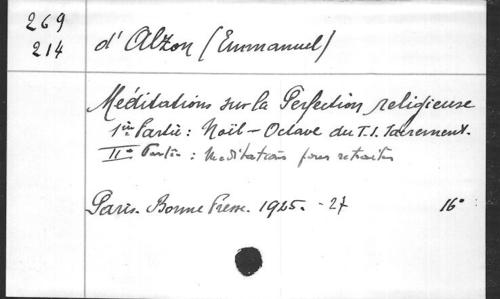 269
214
d'Alzon (Emmanuel)
Méditations sur la Perfection religieuse
1ère Partie : Noël – Octave du T.S. Sacrement.
IIe Partie : Méditations pour retraites
Paris. Bonne Presse. 1925. -27 16°